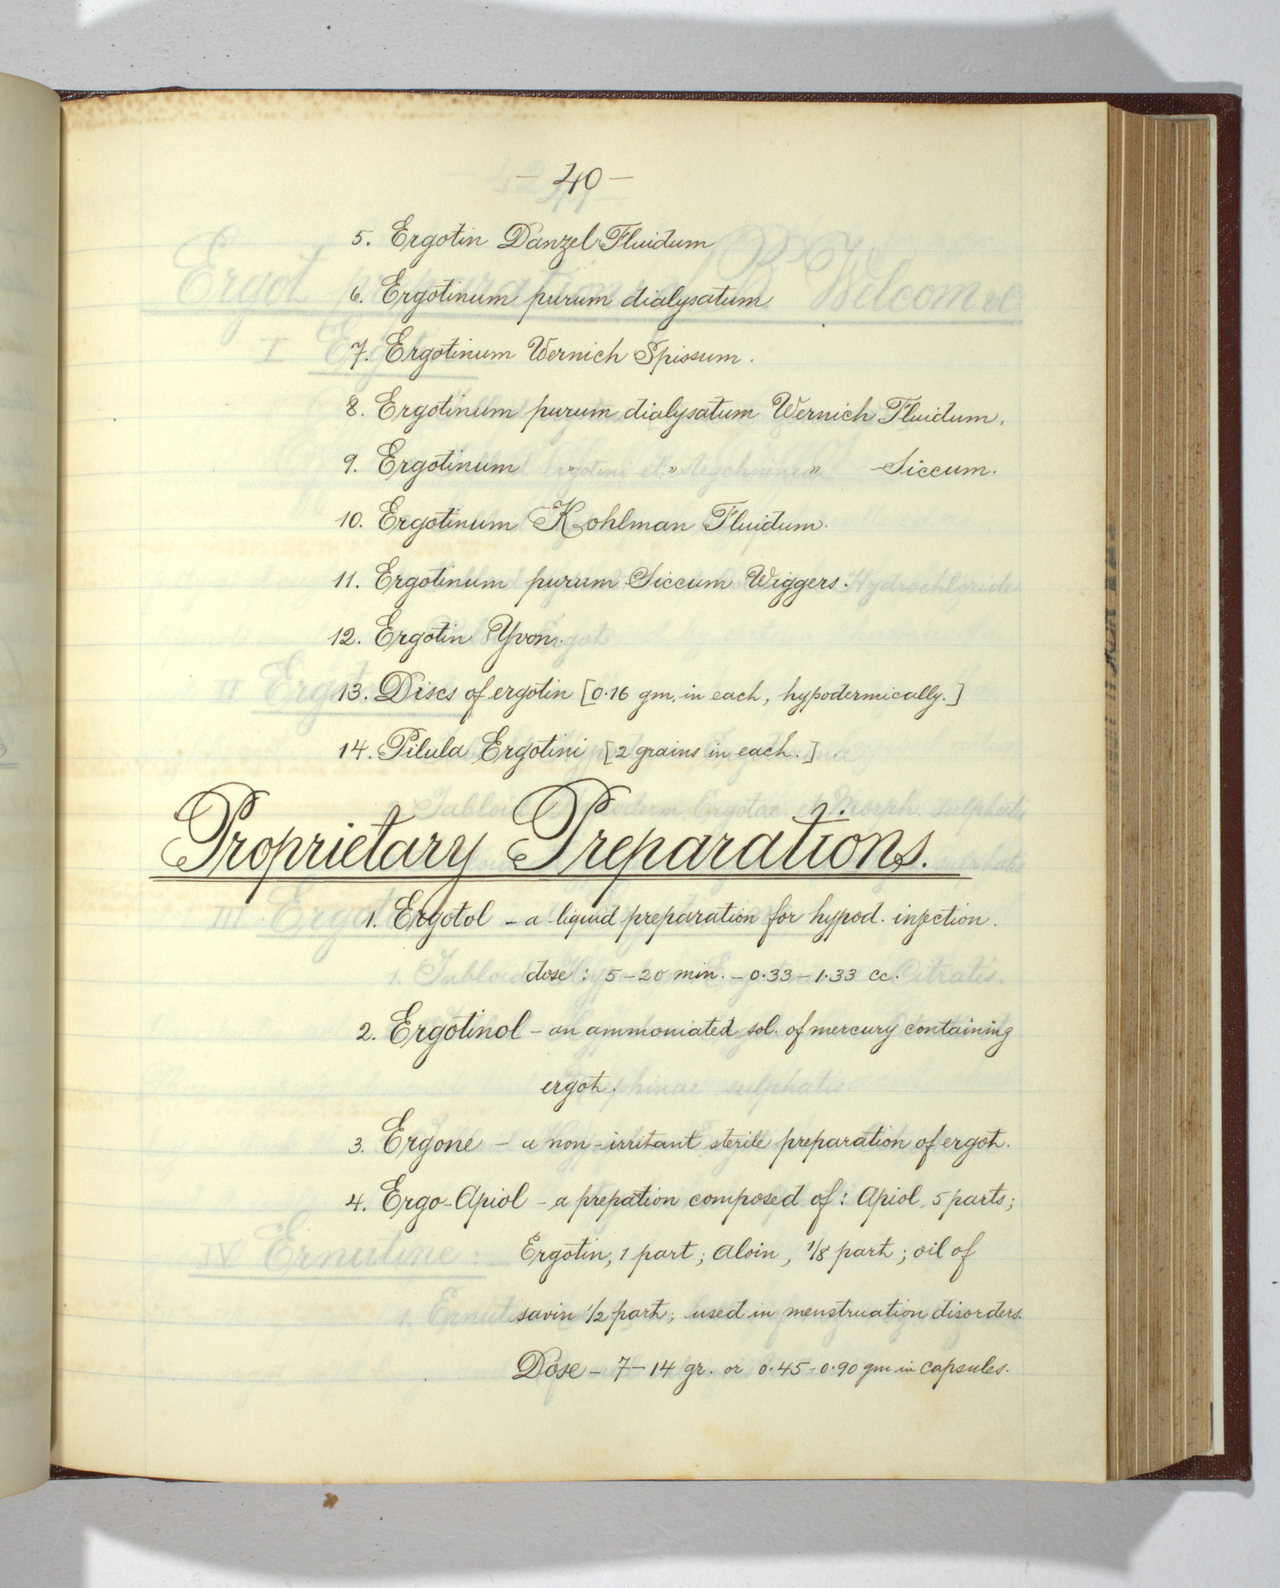 - 40 -
5. Ergotin Danzel Fluidum
6. Ergotinum purum dialysatum
7. Ergotinum Wernich Spissum.
8. Ergotinum purum dialysatum Wernich Fluidum.
9. Ergotinum " " " Siccum.
10. Ergotinum Kohlman Fluidum.
11. Ergotinum purum Siccum Wiggers.
12. Ergotin Yvon.
13. Discs of ergotin [0.16 gm. in each, hypodermically.]
14. Pilula Ergotini [2 grains in each.]
Proprietary Preparations.
1. Ergotol - a liquid preparation for hypod. injection.
dose: 5-20 min. - 0.33 - 1.33 cc.
2. Ergotinol - an ammoniated sol. of mercury containing
ergot.
3. Ergone - a non-irritant sterile preparation of ergot.
4. Ergo-Apiol - a prepation composed of: Apiol, 5 parts;
Ergotin, 1 part; Aloin, 1/8 part; oil of
savin 1/2 part; used in menstruation disorders.
Dose - 7-14 gr. or 0.45-0.90 gm in capsules.